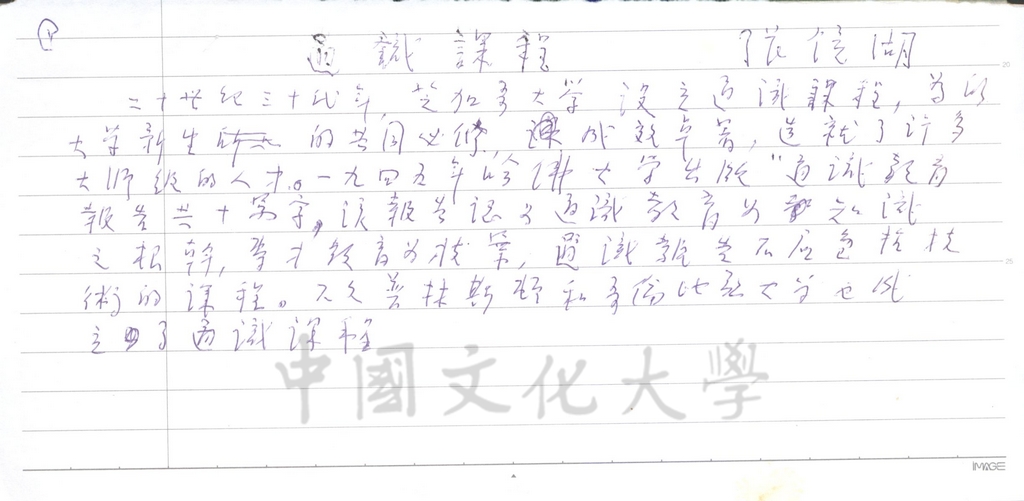 1
通識課程 張鏡湖
二十世紀三十代年,芝加哥大學設立通識課程,為
大学新生的共同必修,課成效卓著,造就了許多
大師級的人才。一九四五年哈佛大学出版"通識教育
報告共十萬字,該報告認為通識教育為知識
之根幹,專才教育為枝葉,通識報告不应包括技
術的課程。不久普林斯頓和哥倫比亞大学也
立了通識課程
中國文化大學
IMAGE